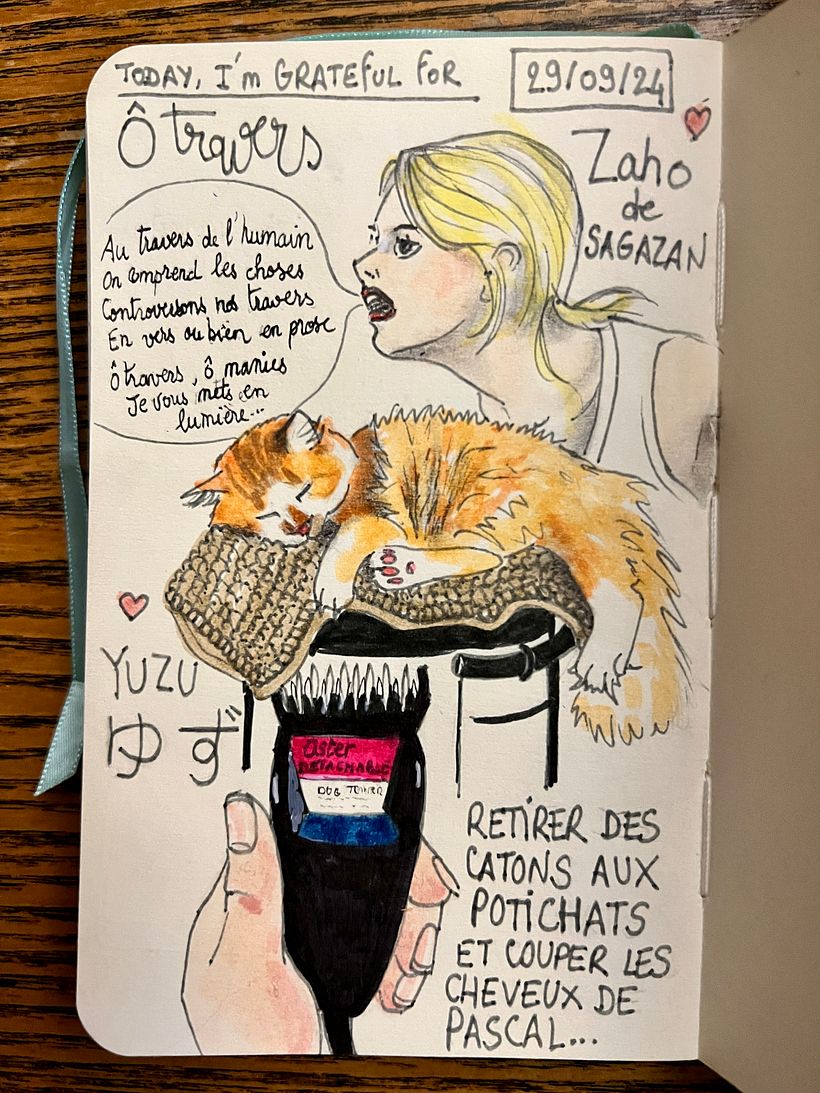 TODAY, I'm GRATEFUL FOR
29/09/24
Ô travers
Zaho
de
SAGAZAN
Au travers de l'humain
On comprend les choses
Controversons nos travers
En vers ou bien en prose
Ô travers, ô manies
Je vous mets en
lumière...
YUZU
ゆず
Oster
DETACHABLE
RETIRER DES
CATONS AUX
POTICHATS
ET COUPER LES
CHEVEUX DE
PASCAL...